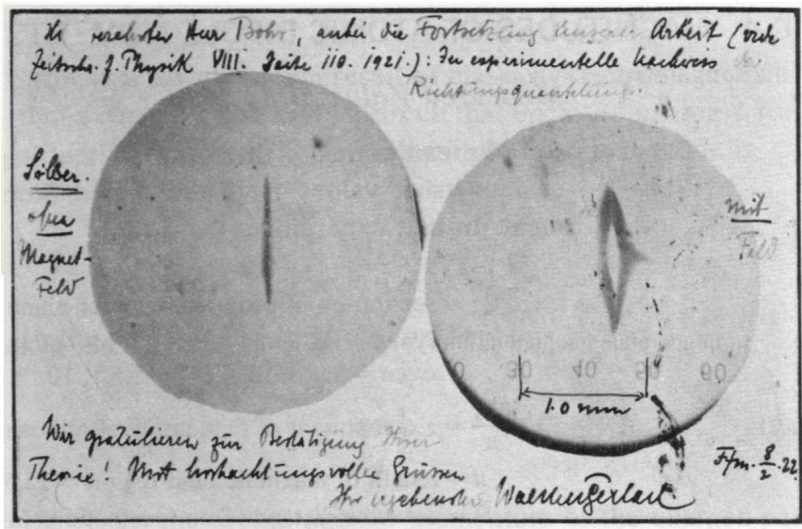 verehrter Herr Bohr, anbei die Fortsetzung unserer Arbeit (vide
Zeitschr. f. Physik VIII. Seite 110. 1921.): Der experimentelle Nachweis der
Richtungsquantelung.
Silber.
ohne
Magnet-
Feld
mit
Feld
30 40 50 60
1.0 mm
Wir gratulieren zur Bestätigung Ihrer
Theorie! Mit hochachtungsvollen Grüssen
Ihr ergebenster Walther Gerlach
F/m. 8/2. 22.